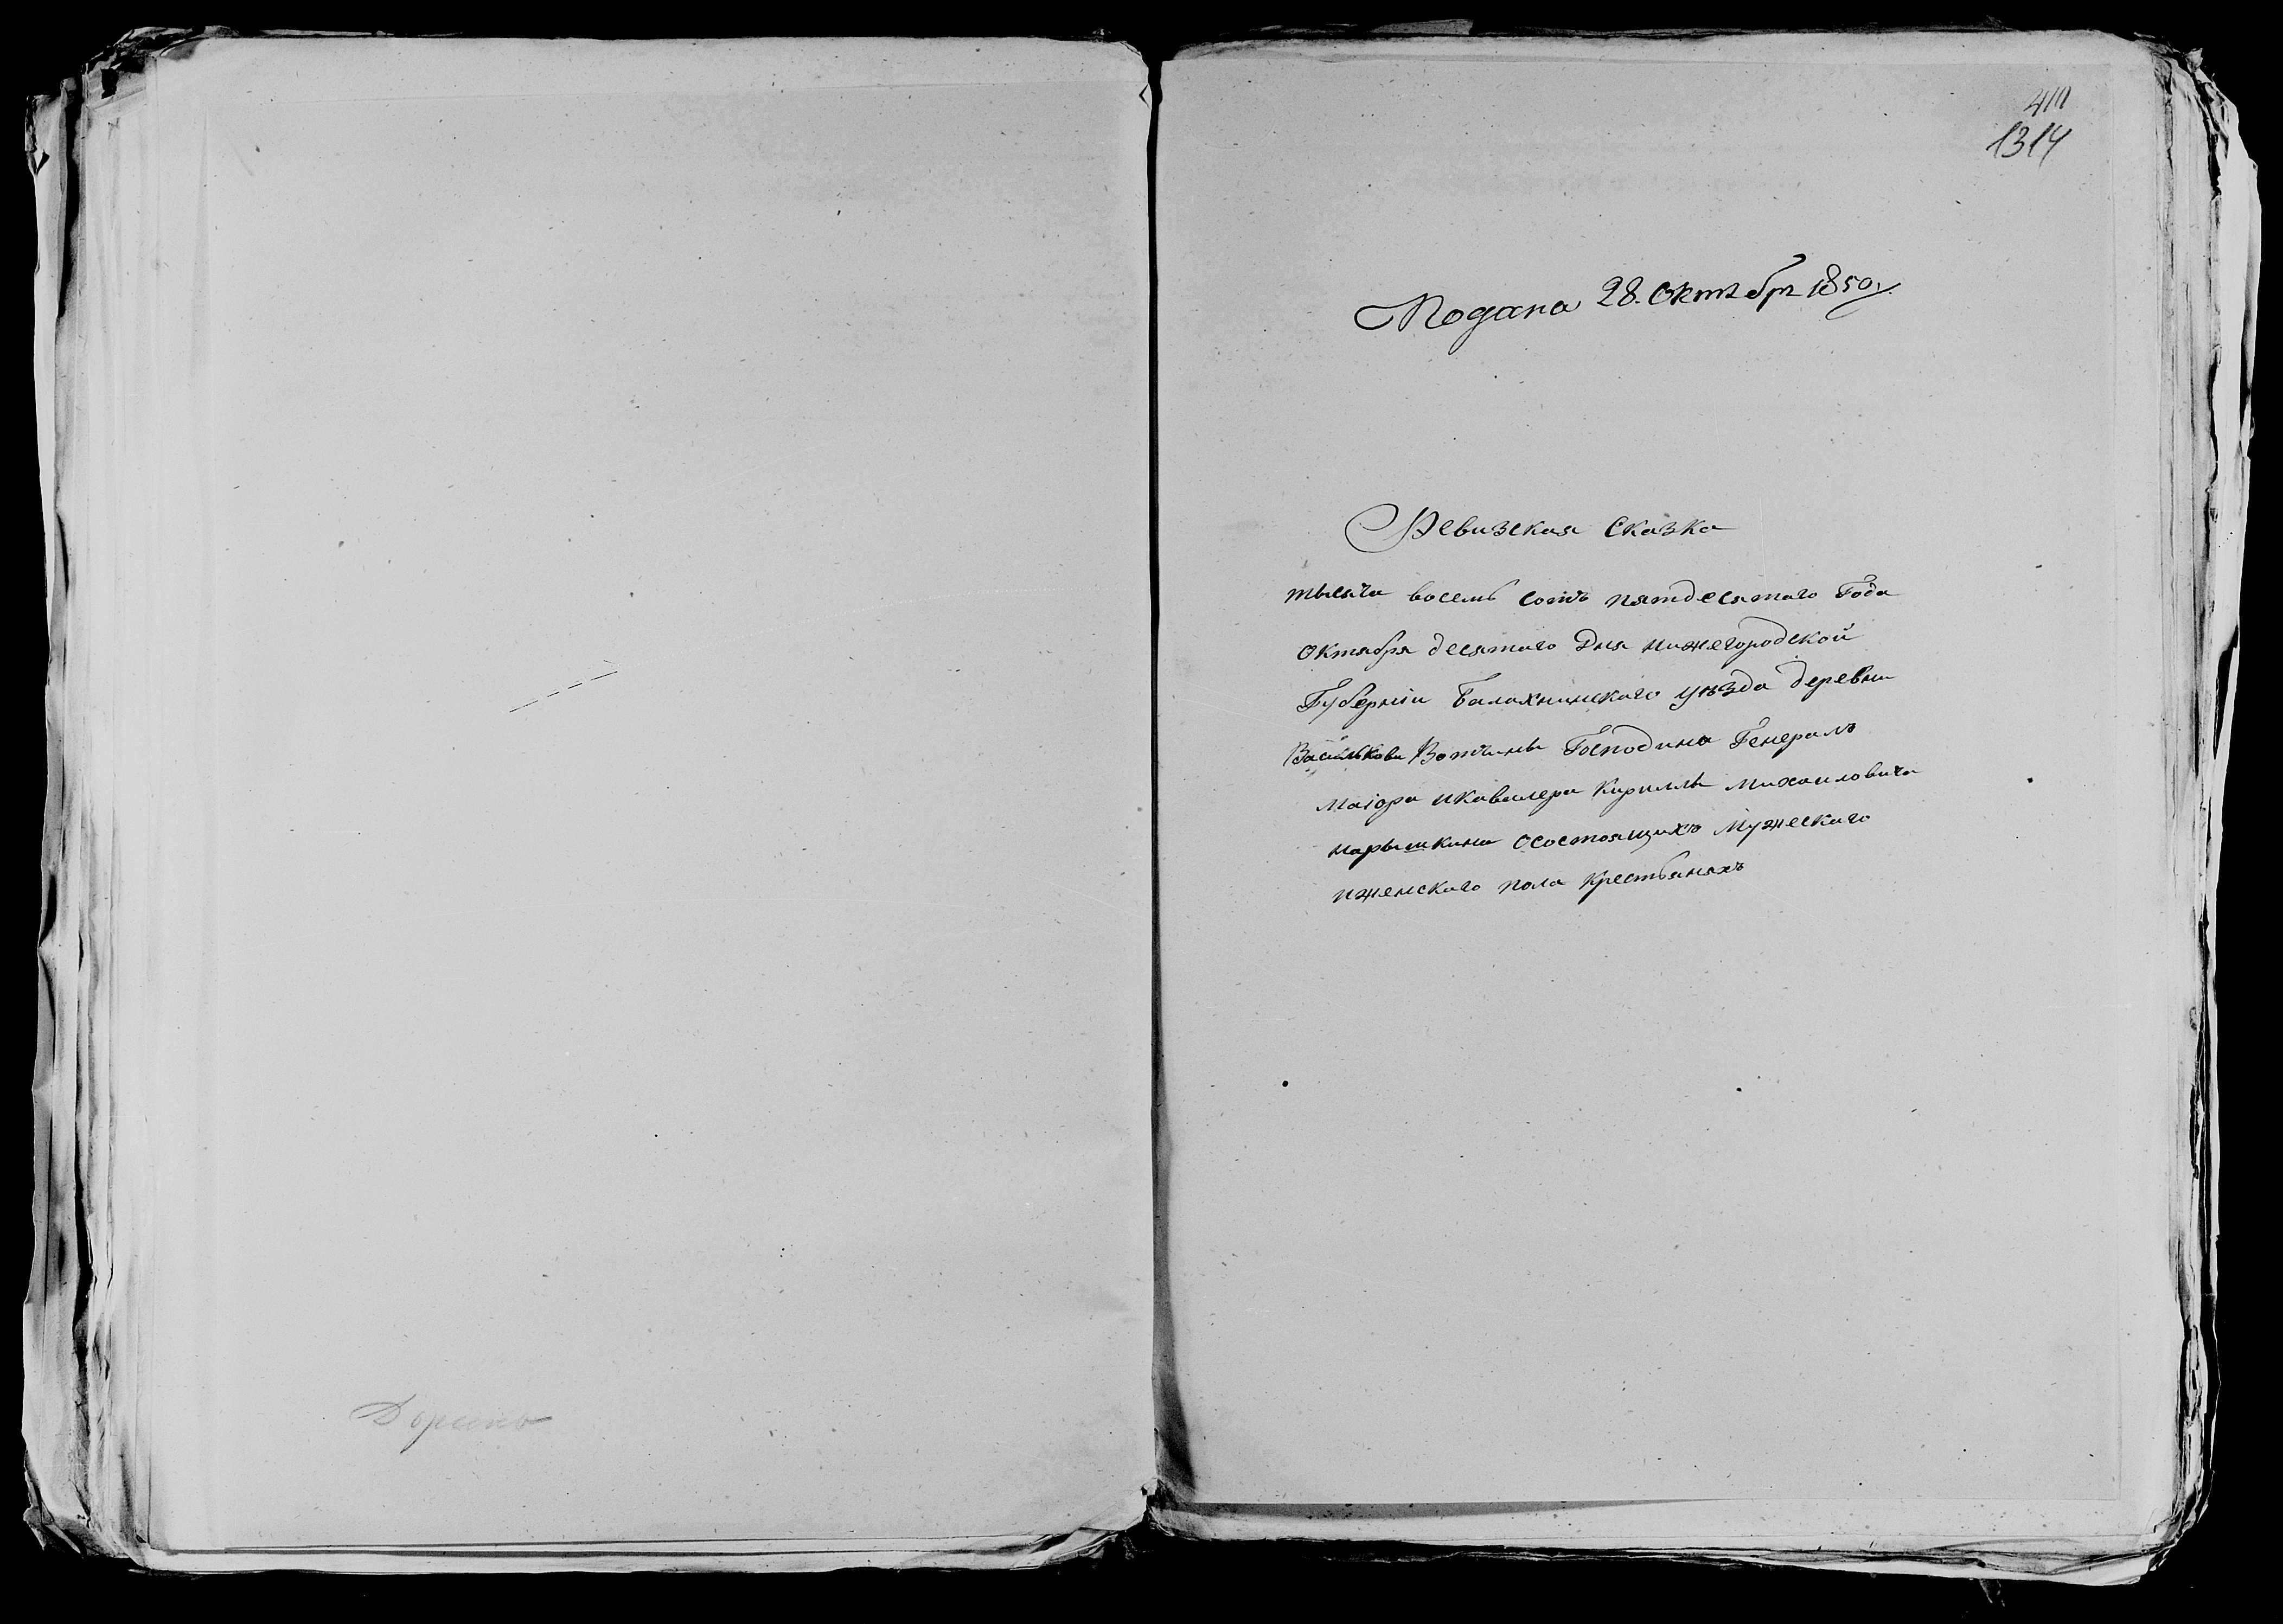 1314
Подана 28. Октября 1850 г.
Ревизская Сказка
тысяча восемь сотъ пятдесятаго Года
Октября десятаго Дня Нижегородской
Губерніи Балахнинскаго уѣзда деревни
Василькова Вотчины Господина Генералъ
Маіора икавалера Кириллы Михаиловича
нарышкина Осостоящихъ Мужескаго
иженскаго пола Крестьянахъ